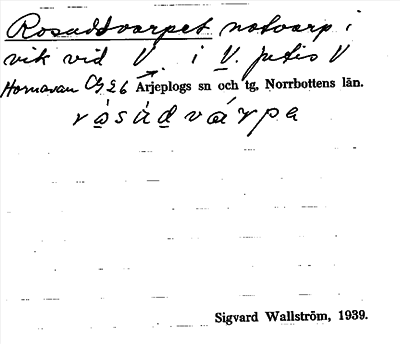 Rosadtvarpet notvarp i
vik vid V. i V. jutis V
Hornavan Cg 26 Arjeplogs sn och tg, Norrbottens län.
rásádvárpa
Sigvard Wallström, 1939.